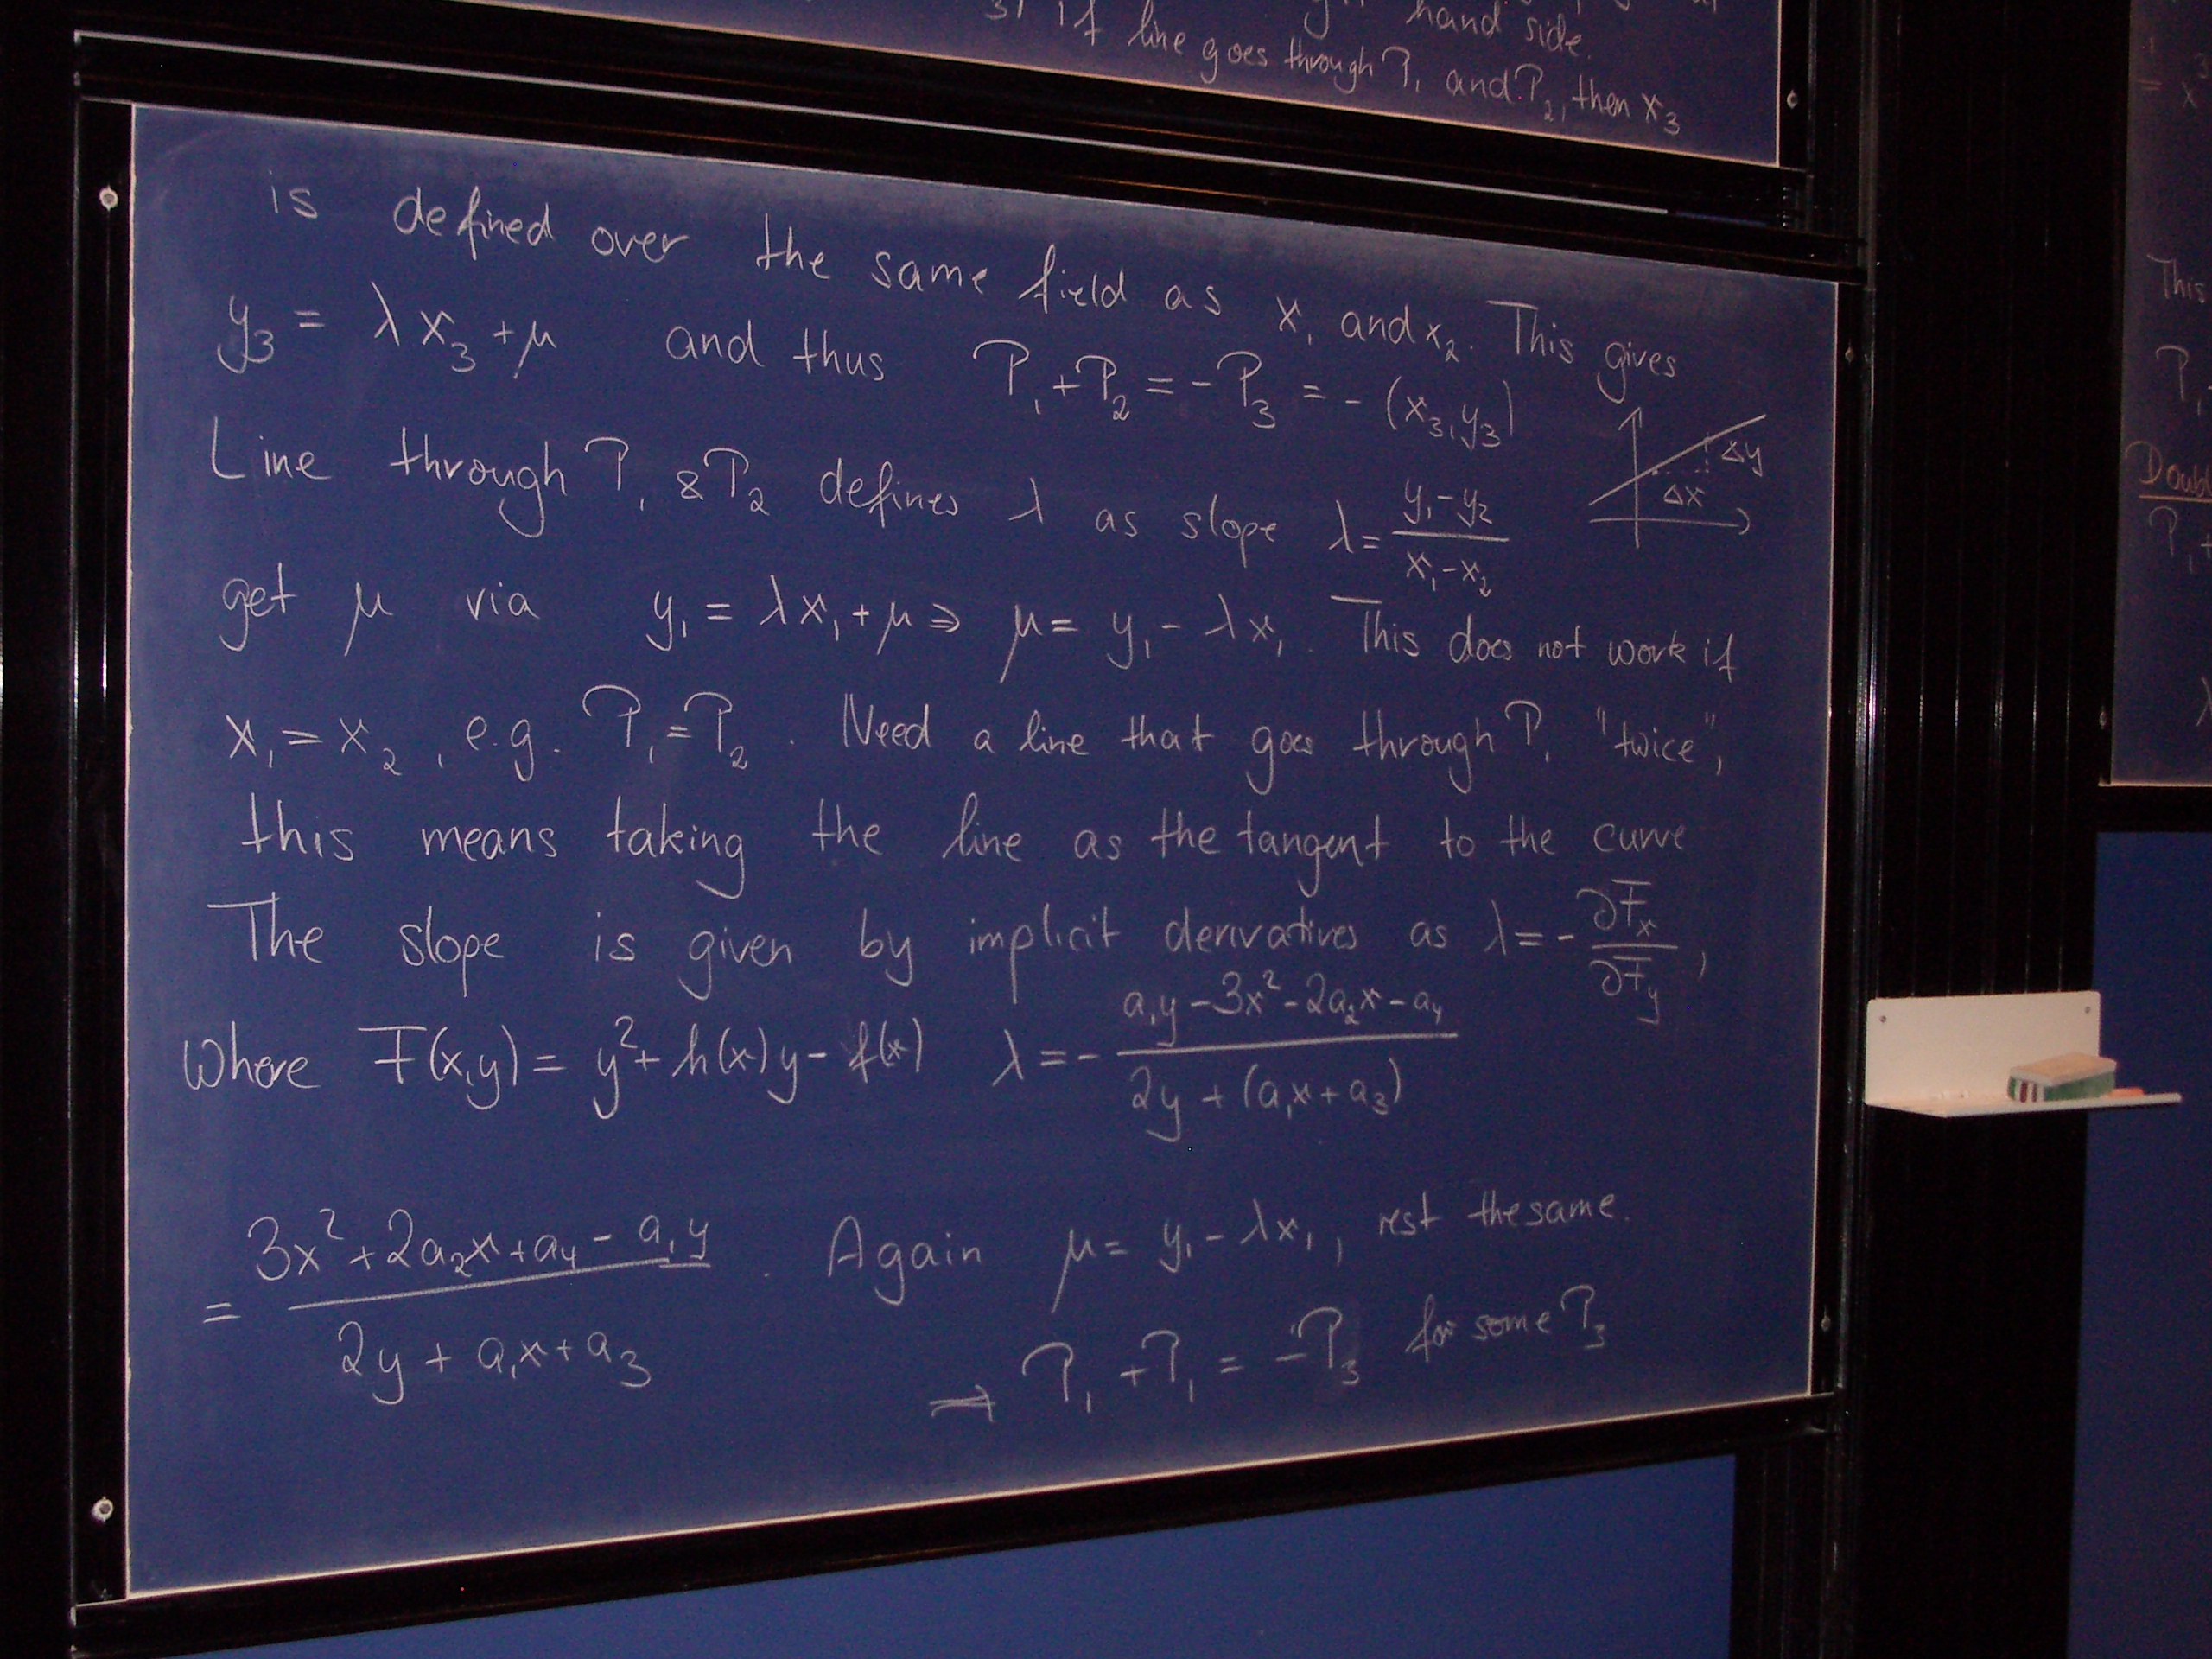 hand side.
3) if line goes through P₁ and P₂, then x₃
is defined over the same field as x₁ and x₂. This gives
y₃ = λx₃ + μ and thus P₁ + P₂ = -P₃ = -(x₃, y₃)
Δy
Δx
Line through P₁ & P₂ defines λ as slope λ = (y₁ - y₂)/(x₁ - x₂)
get μ via y₁ = λx₁ + μ ⇒ μ = y₁ - λx₁. This does not work if
x₁ = x₂, e.g. P₁ = P₂. Need a line that goes through P₁ "twice",
this means taking the line as the tangent to the curve
The slope is given by implicit derivatives as λ = - ∂Fₓ/∂F_y,
where F(x,y) = y² + h(x)y - f(x) λ = - (a₁y - 3x² - 2a₂x - a₄)/(2y + (a₁x + a₃))
= (3x² + 2a₂x + a₄ - a₁y)/(2y + a₁x + a₃). Again μ = y₁ - λx₁, rest the same.
⇒ P₁ + P₁ = -P₃ for some P₃
This
P₁
Doubl
P₁ +
λ